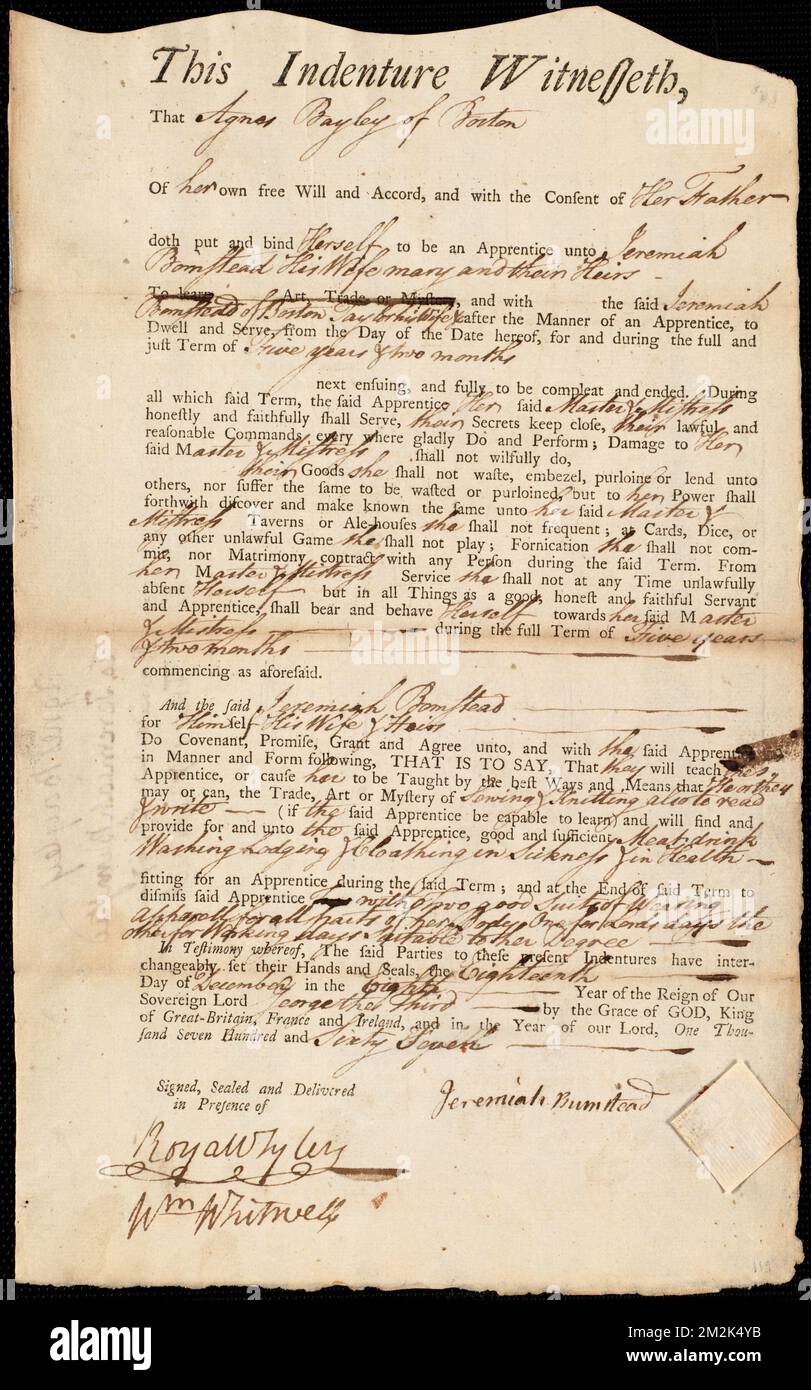 This Indenture Witneſſeth,
That Agnes Bayley of Boston
Of her own free Will and Accord, and with the Conſent of Her Father
doth put and bind Herself to be an Apprentice unto Jeremiah
Bomstead His Wife mary and their Heirs
To learn Art, Trade or Myſtery, and with the ſaid Jeremiah
Bomstead of Boston Taylor his wife & after the Manner of an Apprentice, to
Dwell and Serve, from the Day of the Date hereof, for and during the full and
juſt Term of Five years & two months
next enſuing, and fully to be compleat and ended. During
all which ſaid Term, the ſaid Apprentice Her ſaid Master & Mistress
honeſtly and faithfully ſhall Serve, their Secrets keep cloſe, their lawful and
reaſonable Commands every where gladly Do and Perform; Damage to Her
ſaid Master & Mistress ſhall not wilfully do,
their Goods she ſhall not waſte, embezel, purloine or lend unto
others, nor ſuffer the ſame to be waſted or purloined, but to her Power ſhall
forthwith diſcover and make known the ſame unto her ſaid Master &
Mistress Taverns or Ale-houſes she ſhall not frequent; at Cards, Dice, or
any other unlawful Game she ſhall not play; Fornication she ſhall not com-
mit, nor Matrimony contract with any Perſon during the ſaid Term. From
her Master & Mistress Service she ſhall not at any Time unlawfully
abſent Herself but in all Things as a good, honeſt and faithful Servant
and Apprentice, ſhall bear and behave Herself towards her ſaid Master
& Mistress during the full Term of Five years
& two months
commencing as aforeſaid.
And the ſaid Jeremiah Bomstead
for Himself His Wife & Heirs
Do Covenant, Promiſe, Grant and Agree unto, and with the ſaid Apprentice and
in Manner and Form following, THAT IS TO SAY, That they will teach the
Apprentice, or cauſe her to be Taught by the beſt Ways and Means that He or they
may or can, the Trade, Art or Myſtery of Sowing & Knitting also to read
& write (if the ſaid Apprentice be capable to learn) and will find and
provide for and unto the ſaid Apprentice, good and ſufficient Meat, drink
Washing Lodging & Cloathing in Sickness & in Health
fitting for an Apprentice during the ſaid Term; and at the End of ſaid Term to
diſmiſs ſaid Apprentice with two good Suits of Wearing
Apparell for all parts of her Body One for Lords days the
other for Working days Suitable to her Degree
In Teſtimony whereof, The ſaid Parties to theſe preſent Indentures have inter-
changeably ſet their Hands and Seals, the Eighteenth
Day of December in the Eighth Year of the Reign of Our
Sovereign Lord George the Third by the Grace of GOD, King
of Great-Britain, France and Ireland, and in the Year of our Lord, One Thou-
ſand Seven Hundred and Sixty Seven
Signed, Sealed and Delivered
in Preſence of
Jeremiah Bumstead
Royal Tyler
Wm Whitwell
alamy
Image ID: 2M2K4YB
www.alamy.com